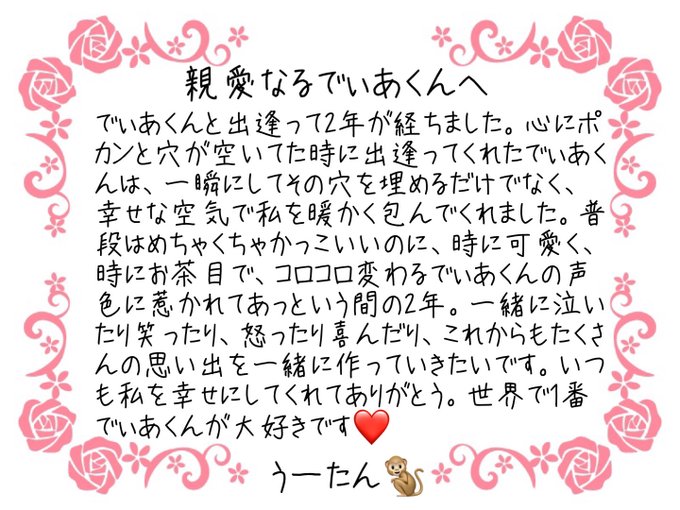 親愛なるでぃあくんへ
でぃあくんと出逢って2年が経ちました。心にポ
カンと穴が空いてた時に出逢ってくれたでぃあく
んは、一瞬にしてその穴を埋めるだけでなく、
幸せな空気で私を暖かく包んでくれました。普
段はめちゃくちゃかっこいいのに、時に可愛く、
時にお茶目で、コロコロ変わるでぃあくんの声
色に惹かれてあっという間の2年。一緒に泣い
たり笑ったり、怒ったり喜んだり、これからもたくさ
んの思い出を一緒に作っていきたいです。いつ
も私を幸せにしてくれてありがとう。世界で1番
でぃあくんが大好きです❤️
うーたん🐒